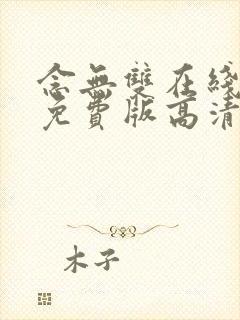 念無雙在綫
免費版高清
木子